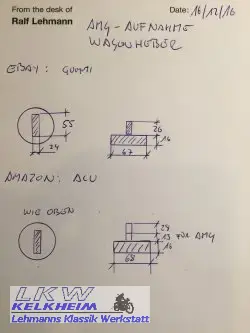 From the desk of
Ralf Lehmann
Date: 16/12/16
AMG-AUFNAHME
WAGENHEBER
EBAY: GUMMI
55
24
26
14
67
AMAZON: ALU
WIE OBEN
29
13 FÜR AMG
14
68
LKW
KELKHEIM
Lehmanns Klassik Werkstatt